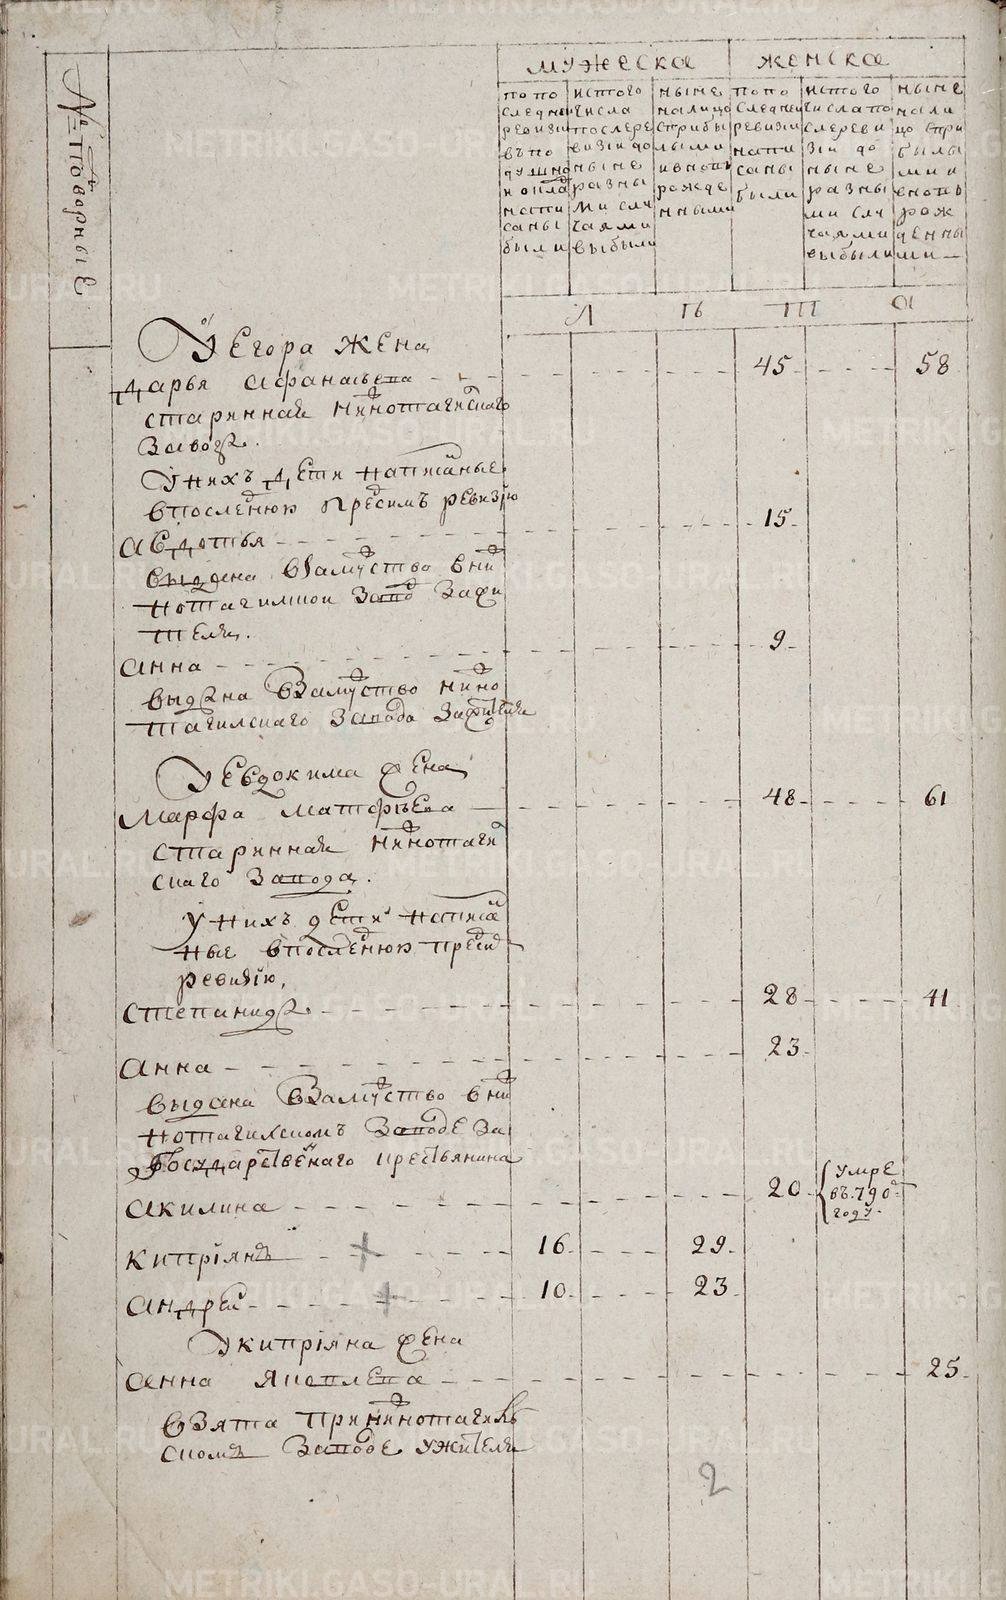 № Дворовые
мужеска
женска
по по
следней
ревизiи
въ по
душно
м окла
напи
саны
были
истого
числа
после ре
визiи до
ныне
разны
ми слу
чаями
выбыли
ныне
налицо
сприбы
лыми
ивновь
рожде
нными
по по
следней
ревизiи
напи
саны
были
истого
числа по
сле реви
зiи до
ныне
разны
ми слу
чаями
выбыли
ныне
нали
цо спри
былы
ми и
вновь
рож
денны
ми
Л Ѣ Т А
У Егора жена
Дарья Афанасьева 45 58
старинная нижнотагилскаго
завода.
У нихъ дети написаные
впоследнюю пред симъ ревизiю
Авдотья 15
выдана взамужство в ниж
нотагилской завод зажи
теля.
Анна 9
выдана взамужство нижно
тагилскаго завода зажителя
У Евдокима жена
Марфа Матфѣева 48 61
стариннай нижнотаги
скаго завода.
У нихъ дети написа
ные впоследнюю пред сим
ревизiю,
Степанида 28 41
Анна 23
выдана взамужство в ниж
нотагилскомъ заводе за
государственаго крестьянина
Акилина 20 умре
въ 790м
году.
Кипрiянъ 16 29
Андрей 10 23
У Кипрiяна жена
Анна Яковлева 25
взята при нижнотагил
скомъ заводе у жителя
2
METRIKI.GASO-URAL.RU